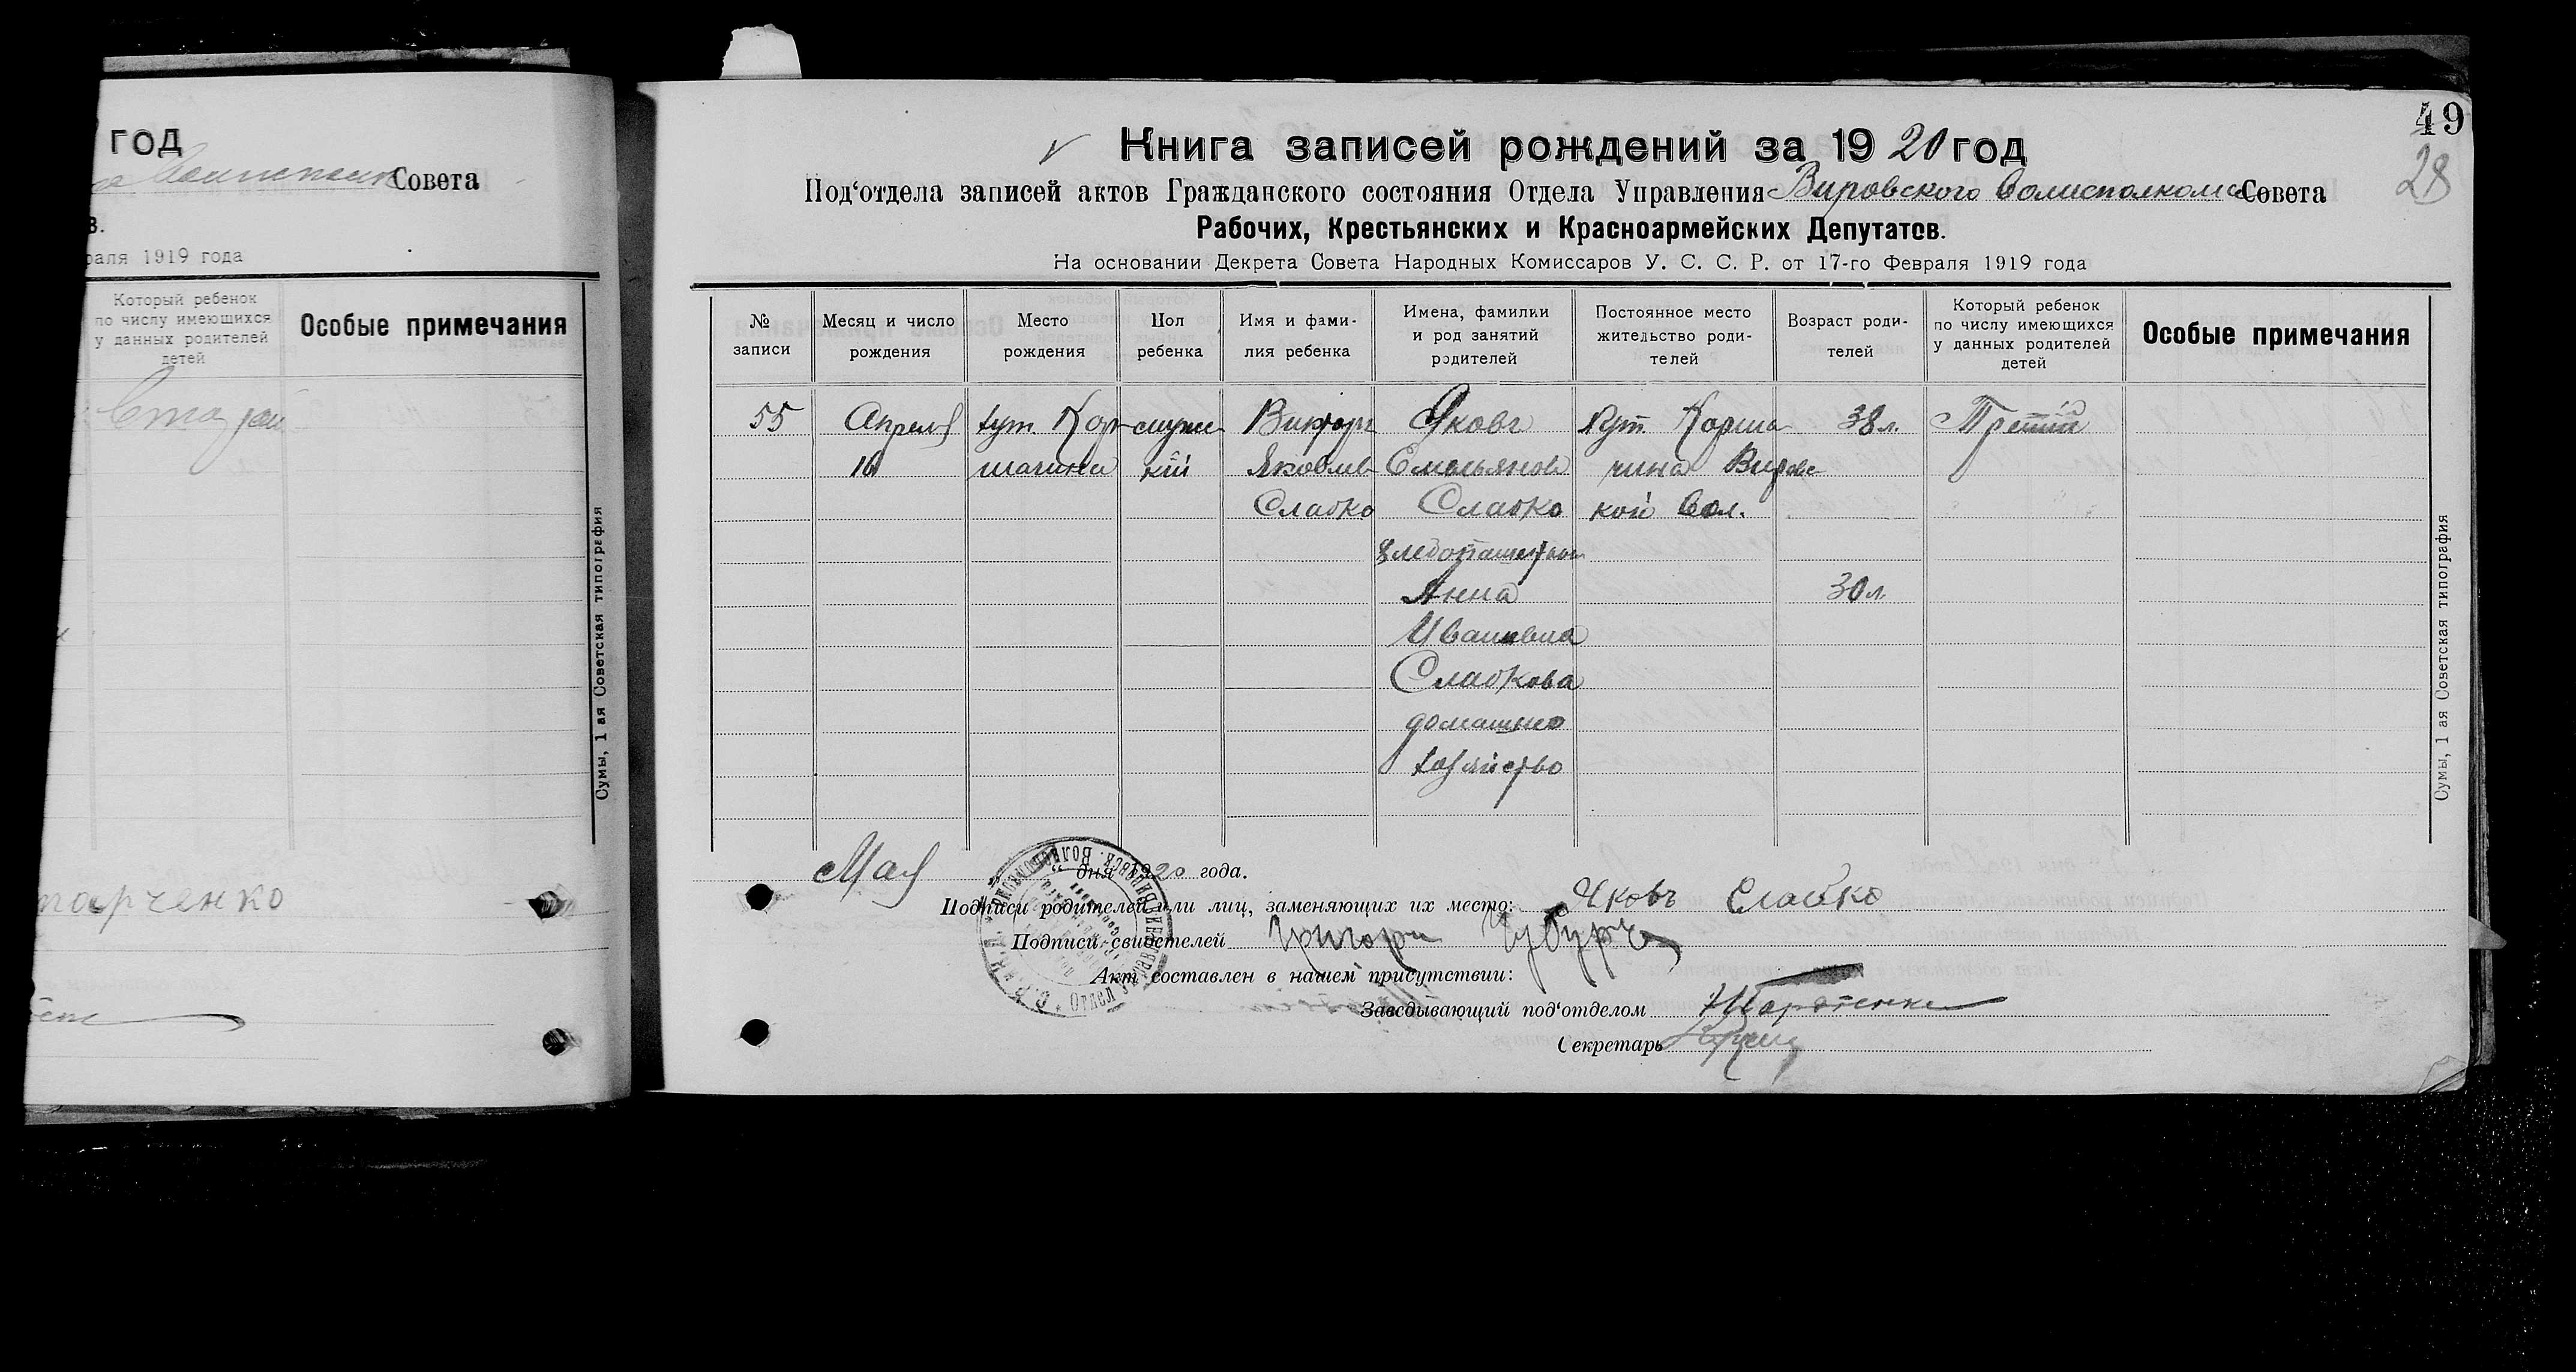 год
Совета
в.
раля 1919 года
Который ребенок
по числу имеющихся
у данных родителей
детей
Особые примечания
Сумы, 1 ая Советская типография
тарченко
49
28
Книга записей рождений за 1920 год
Под'отдела записей актов Гражданского состояния Отдела Управления Вировского Волисполкома Совета
Рабочих, Крестьянских и Красноармейских Депутатов.
На основании Декрета Совета Народных Комиссаров У. С. С. Р. от 17-го Февраля 1919 года
№ записи
Месяц и число рождения
Место рождения
Пол ребенка
Имя и фами-
лия ребенка
Имена, фамилии
и род занятий
родителей
Постоянное место
жительство роди-
телей
Возраст роди-
телей
Который ребенок
по числу имеющихся
у данных родителей
детей
Особые примечания
55 Апреля хут. Кор- мужс Викторъ Яковъ Хут. Корша 38 л. Третий
16 шачина кий Яковлев Емельянов чина Вировс
Слабко Слабко кой Вол.
хлебопашество
Анна 30 л.
Ивановна
Слабкова
домашнее
хозяйство
Мая дня 1920 года.
Подписи родителей или лиц, заменяющих их место: Яковъ Слабко
Подписи свидетелей Григори
Акт составлен в нашем присутствии:
Заведывающий под'отделом
Секретарь
Сумы, 1 ая Советская типография